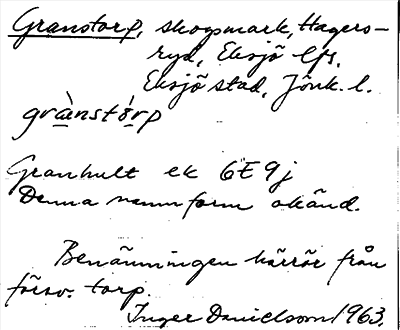 Granstorp, skogsmark, Hagers-
ryd, Eksjö lfs,
Eksjö stad, Jönk. l.
grà̱nstó̱rp
Granhult ek 6E9j
Denna namnform okänd.
Benämningen härrör från
försv. torp.
Inger Danielsson 1963.